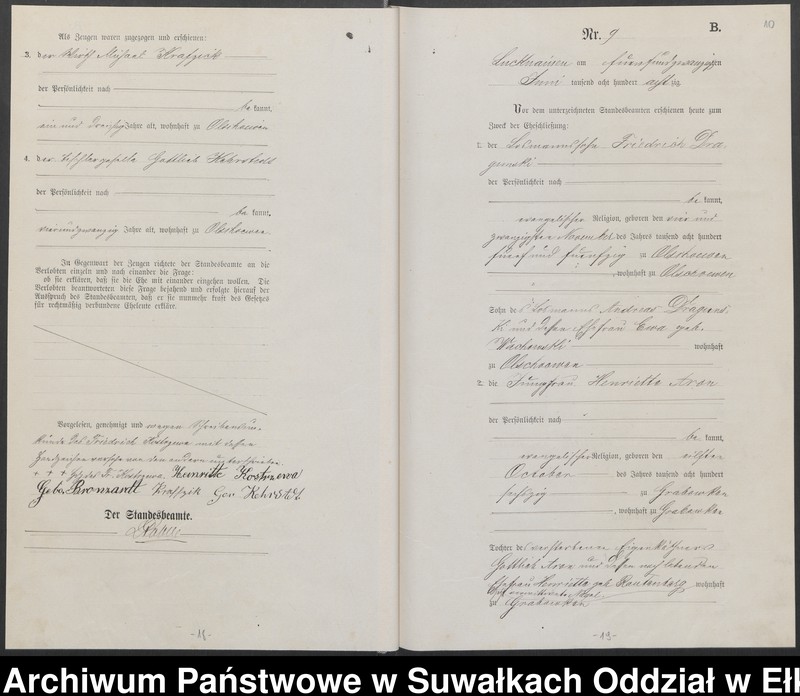 Als Zeugen waren zugezogen und erschienen:
3. der Wirth Michael Krafzick
der Persönlichkeit nach
bekannt,
ein und dreißig Jahre alt, wohnhaft zu Olschöwen
4. der Tischlergeselle Gottlieb Kehrstedt
der Persönlichkeit nach
bekannt,
vierundzwanzig Jahre alt, wohnhaft zu Olschoewen
In Gegenwart der Zeugen richtete der Standesbeamte an die
Verlobten einzeln und nach einander die Frage:
ob sie erklären, daß sie die Ehe mit einander eingehen wollen. Die
Verlobten beantworteten diese Frage bejahend und erfolgte hierauf der
Ausspruch des Standesbeamten, daß er sie nunmehr kraft des Gesetzes
für rechtmäßig verbundene Eheleute erkläre.
Vorgelesen, genehmigt und wegen Schreibensun-
kunde des Friedrich Kostrzewa mit dessen
Handzeichen versehen von den andern unterschrieben.
+ + + Kostrzewa. Henriette Kostrzewa
Gebo. Bronzardt Kraffzik Gott. Kehrstedt
Der Standesbeamte.
-18-
B.
10
Nr. 9
Lucknainen am fuenfundzwanzigsten
Juni tausend acht hundert achtzig
Vor dem unterzeichneten Standesbeamten erschienen heute zum
Zweck der Eheschließung:
1. der Losmannssohn Friedrich Dra
gunski
der Persönlichkeit nach
bekannt,
evangelischer Religion, geboren den vier und
zwanzigsten November des Jahres tausend acht hundert
fünf und fuenfzig zu Olschoewen
, wohnhaft zu Olschoewen
Sohn des Losmanns Andreas Draguns
ki und dessen Ehefrau Ewa geb.
Wachowski wohnhaft
zu Olschoewen
2. die Jungfrau Henriette Aran
der Persönlichkeit nach
bekannt,
evangelischer Religion, geboren den eilften
October des Jahres tausend acht hundert
sechszig zu Grabowken
, wohnhaft zu Grabowken
Tochter des verstorbenen Eigenkäthners
Gottlieb Aran und dessen noch lebenden
Ehefrau Henriette geb. Rautenberg wohnhaft
zu Grabowken
-19-
Archiwum Państwowe w Suwałkach Oddział w Eł